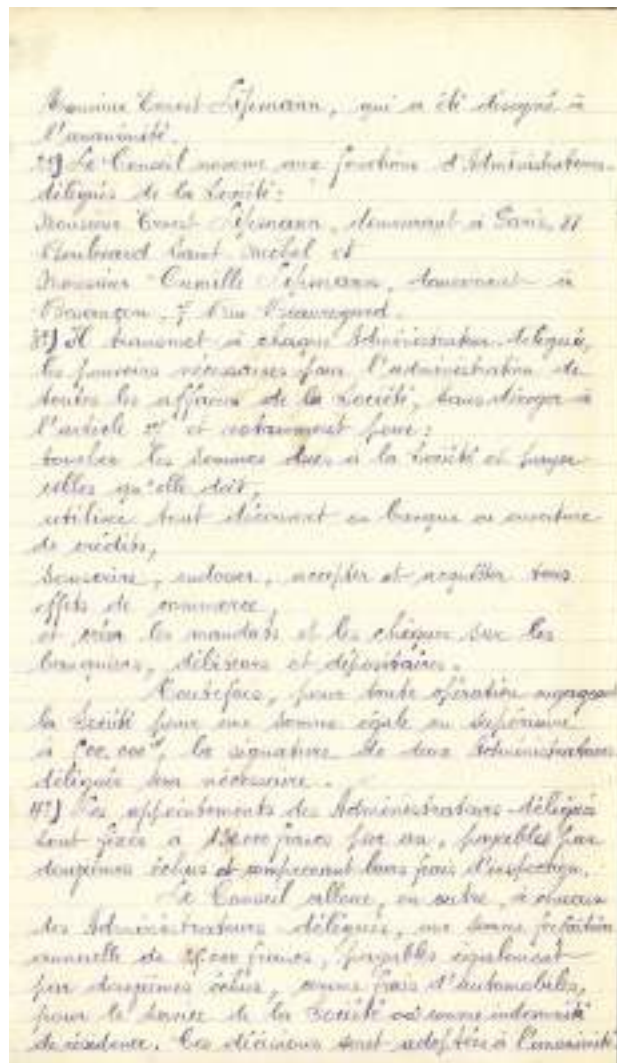 Monsieur Ernest Lipmann, qui a été désigné à
l'unanimité.
2°) Le Conseil nomme aux fonctions d'Administrateurs-
délégués de la Société:
Monsieur Ernest Lipmann, demeurant à Paris,
Boulevard Saint Michel et
Monsieur Camille Lipmann, demeurant à
Besançon, 7 Rue Beauregard.
3°) Il transmet à chaque Administrateur-délégué,
les pouvoirs nécessaires pour l'administration de
toutes les affaires de la Société, sans déroger à
l'article et notamment pour:
toucher les sommes dues à la Société et payer
celles qu'elle doit,
utiliser tout découvert en banque ou ouverture
de crédits,
Souscrire, endosser, accepter et acquitter tous
effets de commerce,
et créer les mandats et les chèques sur les
banquiers, débiteurs et dépositaires.
Toutefois, pour toute opération engageant
la Société pour une somme égale ou supérieure
à la signature de deux Administrateurs
délégués sera nécessaire.
4°) Les appointements des Administrateurs-délégués
sont fixés à francs par an, payables par
douzièmes échus et comprenant leurs frais d'inspection.
Le Conseil alloue, en outre, à chacun
des Administrateurs-délégués, une somme forfaitaire
annuelle de francs, payables également
par douzièmes échus, comme frais d'automobiles,
pour le service de la Société et comme indemnité
de résidence. Ces décisions sont adoptées à l'unanimité